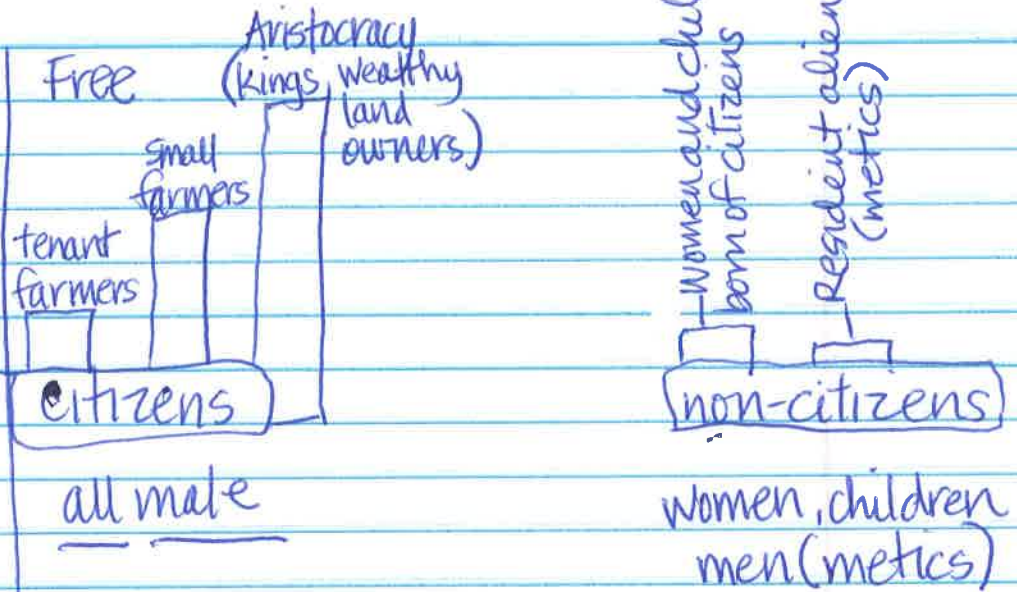 Free
Aristocracy
(kings, wealthy
land
owners)
small
farmers
tenant
farmers
citizens
all male
Women and
born of citizens
Resident alien
(metics)
non-citizens
women, children
men (metics)